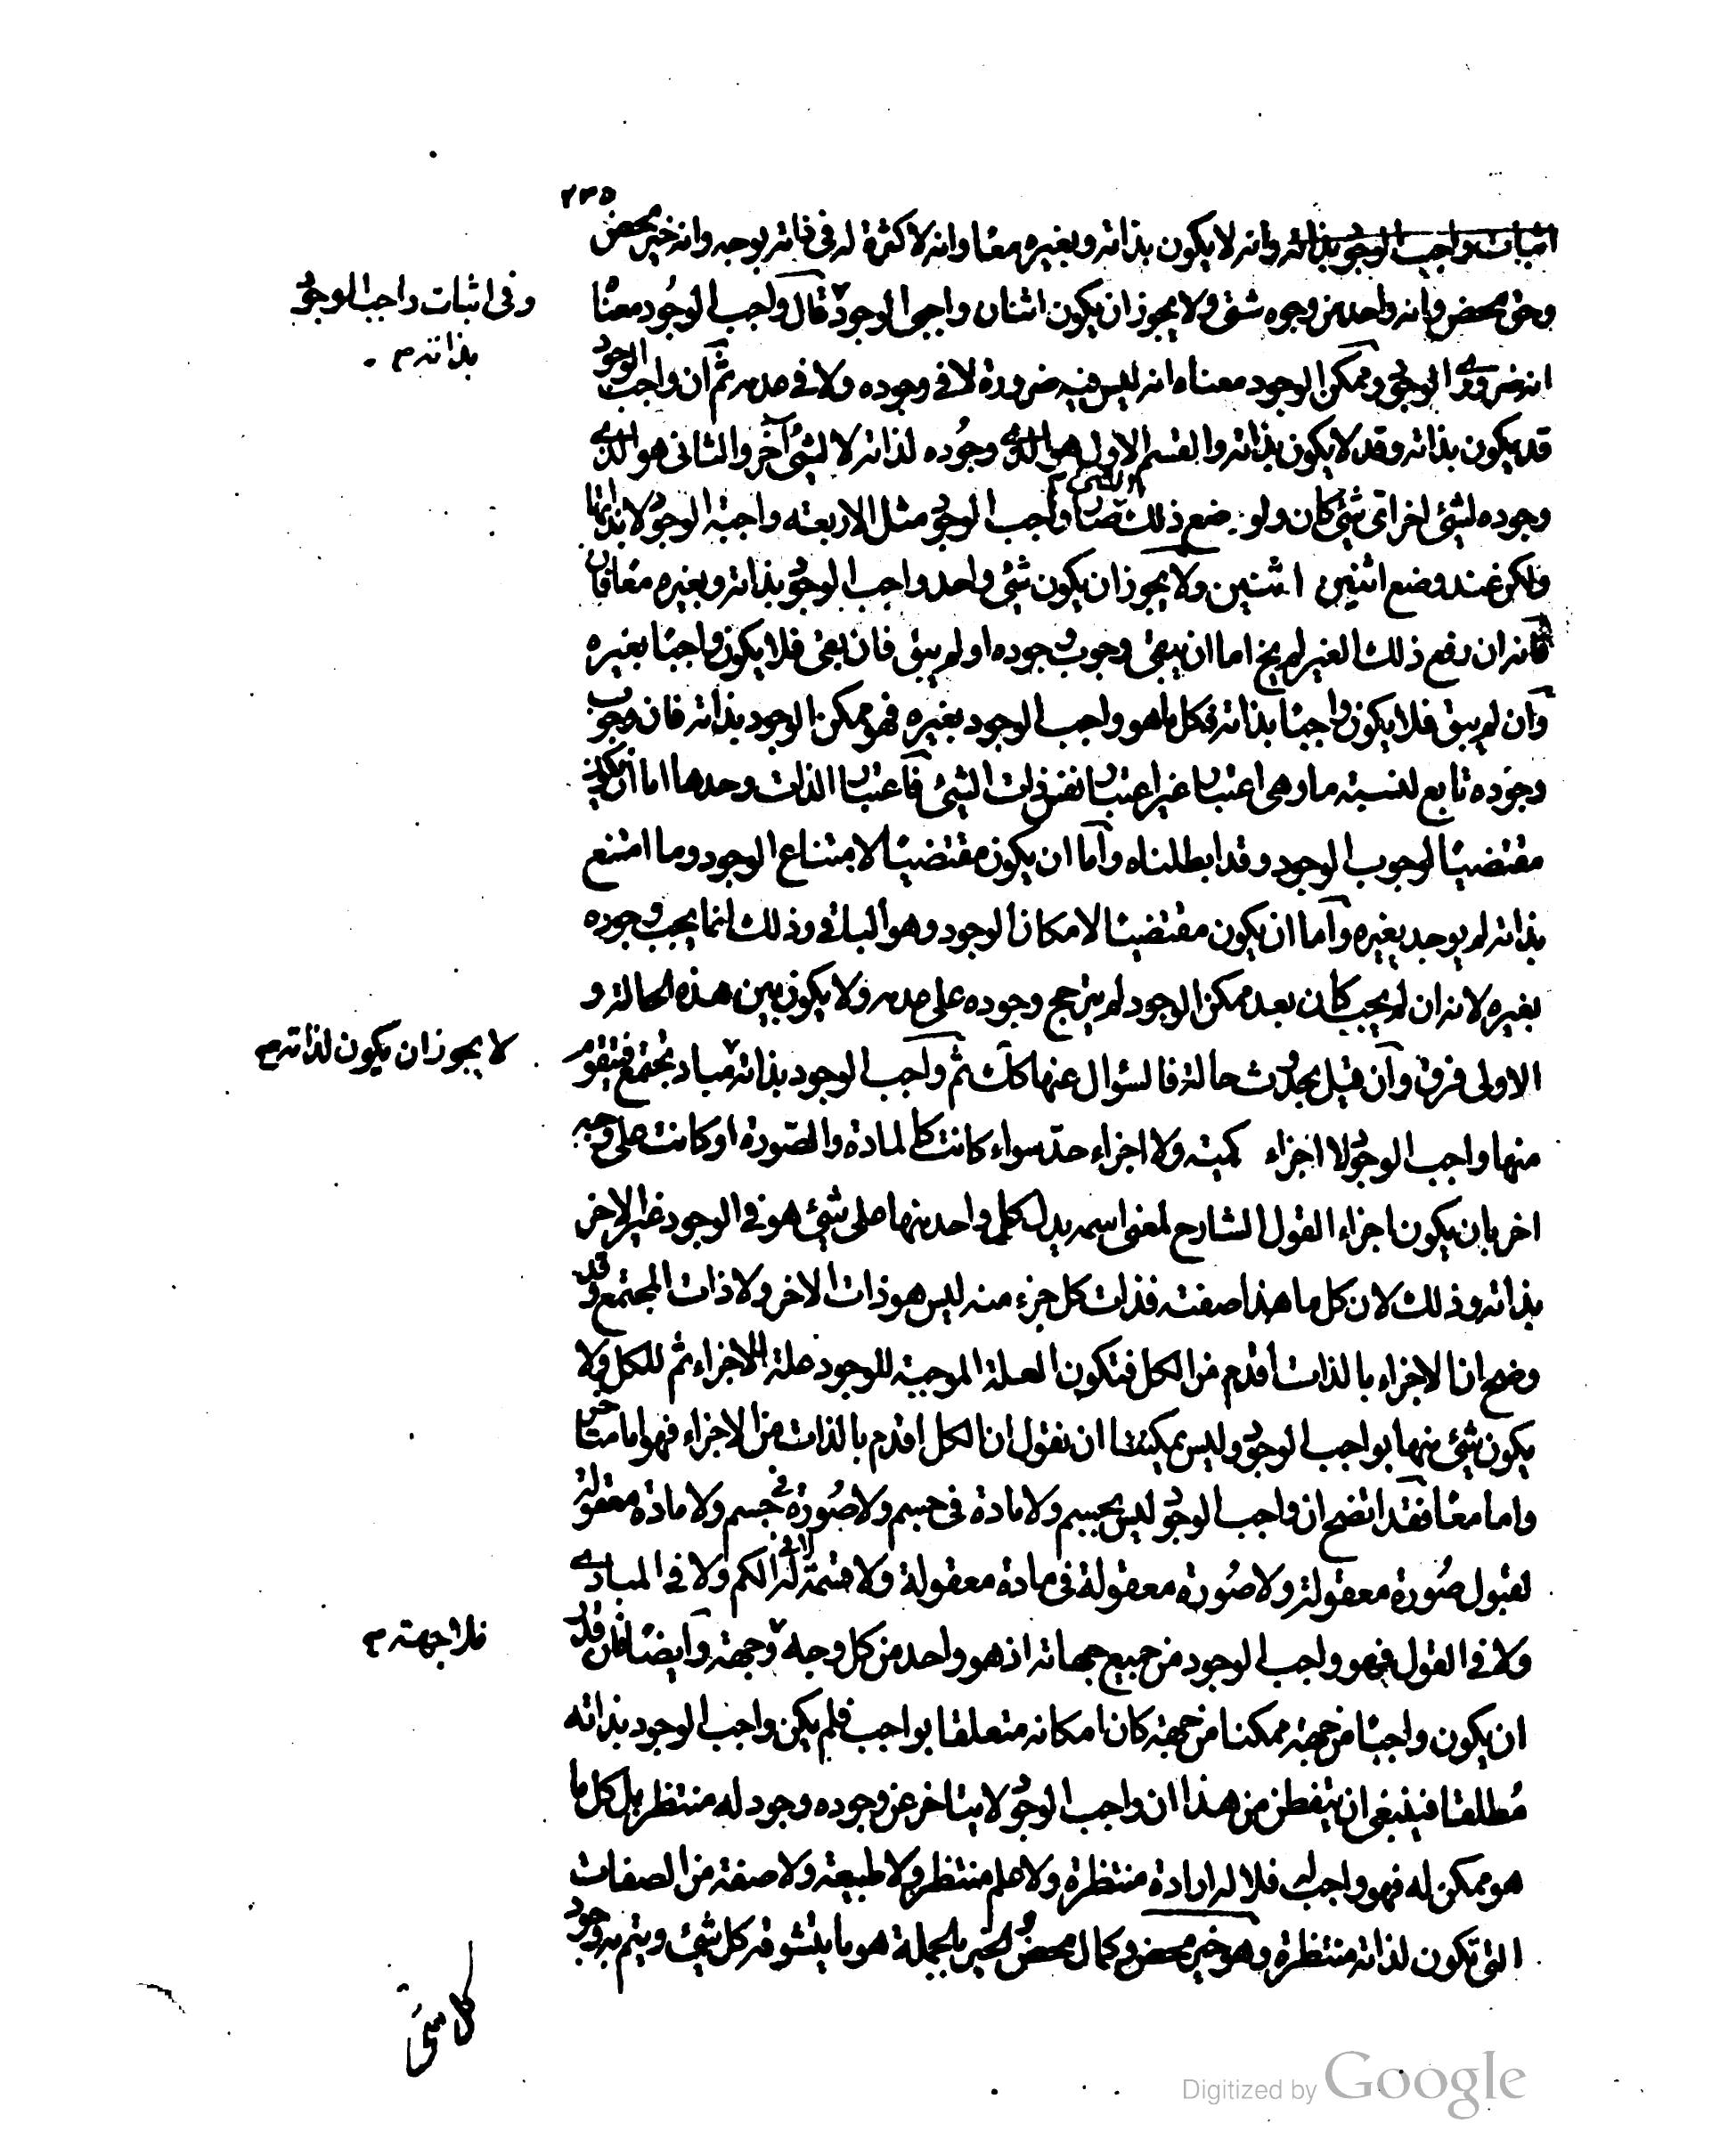 ٢٣٥
اثبات واجب الوجود بذاته وانه لا يكون بذاته وبغيره معا وانه لا كثرة له فى ذاته بوجه وانه خير محض
وحق محض وانه واحد من وجوه شتى ولا يجوز ان يكون اثنان واجبى الوجود قال واجب الوجود معناه
وفى اثبات واجب الوجود
بذاته م
انه ضرورى الوجود وممكن الوجود معناه انه ليس فيه ضرورة لا فى وجوده ولا فى عدمه ثم ان واجب الوجود
قد يكون بذاته وقد لا يكون بذاته والقسم الاول هو الذى وجوده لذاته لا لشئ آخر والثانى هو الذى
وجوده لشئ اخر اى شئ كان ولو وضع ذلك الشئ صار واجب الوجود مثل الاربعة واجبة الوجود لا بذاتها
ولكن عند وضع اثنين اثنين ولا يجوز ان يكون شئ واحد واجب الوجود بذاته وبغيره معا فان
فانه ان رفع ذلك الغير لم يخ اما ان يبقى وجوب وجوده او لم يبق فان بقى فلا يكون واجبا بغيره
وان لم يبق فلا يكون واجبا بذاته فكل ما هو واجب الوجود بغيره فهو ممكن الوجود بذاته فان وجوب
وجوده تابع لنسبة ما وهى اعتبار غير اعتبار نفس ذات الشئ فاعتبار الذات وحدها اما ان يكون
مقتضيا لوجوب الوجود وقد ابطلناه واما ان يكون مقتضيا لامتناع الوجود وما امتنع
بذاته لم يوجد بغيره واما ان يكون مقتضيا لامكان الوجود وهو الباقى وذلك انما يجب وجوده
بغيره لانه ان لم يجب كان بعد ممكن الوجود لم يترجح وجوده على عدمه ولا يكون بين هذه الحالة و
الاولى فرق وان قيل تجددت حالة فالسؤال عنها كك ثم واجب الوجود بذاته مباد تجتمع فيتقوم
لا يجوز ان يكون لذاته م
منها واجب الوجود لا اجزاء كمية ولا اجزاء حد سواء كانت كالمادة والصورة او كانت على وجه
اخر بان يكون اجزاء القول الشارح لمعنى اسمه يدل كل واحد منها على شئ هو فى الوجود غير الاخر
بذاته وذلك لان كل ما هذا صفته فذات كل جزء منه ليس هو ذات الاخر ولا ذات المجتمع وقد
وضح ان الاجزاء بالذات اقدم من الكل فتكون العلة الموجبة للوجود علة للاجزاء ثم للكل ولا
يكون شئ منها بواجب الوجود وليس يمكننا ان نقول ان الكل اقدم بالذات من الاجزاء فهو اما متاخر
واما معا فقد اتضح ان واجب الوجود ليس بجسم ولا مادة فى جسم ولا صورة فى جسم ولا مادة معقولة
لقبول صورة معقولة ولا صورة معقولة فى مادة معقولة ولا قسمة له لا فى الكم ولا فى المبادى
ولا فى القول فهو واجب الوجود من جميع جهاته اذ هو واحد من كل وجه وجهة وايضا فان قدر
فلا جهة م
ان يكون واجبا من جهة ممكنا من جهة كان امكانه متعلقا بواجب فلم يكن واجب الوجود بذاته
مطلقا فينبغى ان يتفطن من هذا ان واجب الوجود لا يتاخر عن وجوده وجود له منتظر بل كل ما
هو ممكن له فهو واجب له فلا له ارادة منتظرة ولا علم منتظر ولا طبيعة ولا صفة من الصفات
التى تكون لذاته منتظرة وهو خير محض وكمال محض الخير بالجملة هو ما يتشوقه كل شئ ويتم به وجود
كل شئ
Digitized by Google